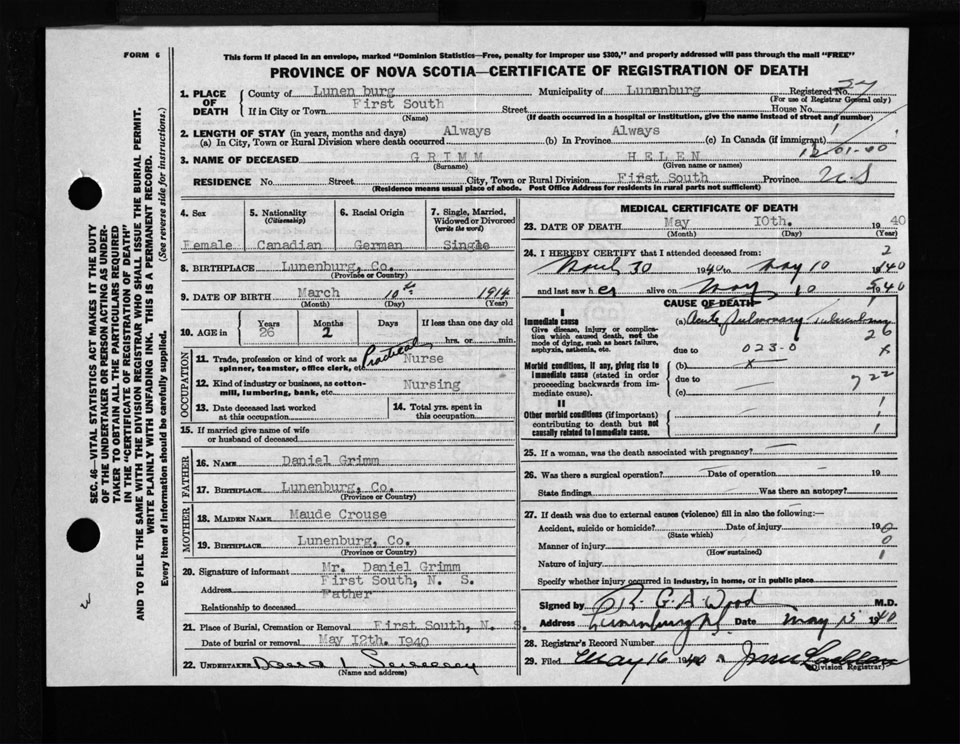 FORM 6
This form if placed in an envelope, marked "Dominion Statistics—Free, penalty for improper use $300," and properly addressed will pass through the mail "FREE"
PROVINCE OF NOVA SCOTIA—CERTIFICATE OF REGISTRATION OF DEATH
SEC. 46—VITAL STATISTICS ACT MAKES IT THE DUTY
OF THE UNDERTAKER OR PERSON ACTING AS UNDER-
TAKER TO OBTAIN ALL THE PARTICULARS REQUIRED
IN THE "CERTIFICATE OF REGISTRATION OF DEATH"
AND TO FILE THE SAME WITH THE DIVISION REGISTRAR WHO SHALL ISSUE THE BURIAL PERMIT.
WRITE PLAINLY WITH UNFADING INK. THIS IS A PERMANENT RECORD.
Every item of information should be carefully supplied. (See reverse side for instructions.)
1. PLACE OF DEATH
County of Lunen burg Municipality of Lunenburg Registered No. 27
(For use of Registrar General only)
If in City or Town First South Street House No.
(Name) (If death occurred in a hospital or institution, give the name instead of street and number)
2. LENGTH OF STAY (in years, months and days) Always Always
(a) In City, Town or Rural Division where death occurred (b) In Province (c) In Canada (if immigrant)
3. NAME OF DECEASED GRIMM HELEN
(Surname) (Given name or names)
RESIDENCE No. Street City, Town or Rural Division First South Province N.S
(Residence means usual place of abode. Post Office Address for residents in rural parts not sufficient)
4. Sex
Female
5. Nationality
(Citizenship)
Canadian
6. Racial Origin
German
7. Single, Married,
Widowed or Divorced
(write the word)
Single
8. BIRTHPLACE Lunenburg, Co.
(Province or Country)
9. DATE OF BIRTH March 10th 1914
(Month) (Day) (Year)
10. AGE in
Years Months Days If less than one day old
26 2 hrs. or min.
OCCUPATION
11. Trade, profession or kind of work as Practical Nurse
spinner, teamster, office clerk, etc.
12. Kind of industry or business, as cotton- Nursing
mill, lumbering, bank, etc.
13. Date deceased last worked
at this occupation
14. Total yrs. spent in
this occupation
15. If married give name of wife
or husband of deceased
FATHER
16. NAME Daniel Grimm
17. BIRTHPLACE Lunenburg, Co.
(Province or Country)
MOTHER
18. MAIDEN NAME Maude Crouse
19. BIRTHPLACE Lunenburg, Co.
(Province or Country)
20. Signature of informant Mr. Daniel Grimm
Address First South, N. S.
Relationship to deceased Father
21. Place of Burial, Cremation or Removal First South, N. S.
Date of burial or removal May 12th. 1940
22. UNDERTAKER
(Name and address)
MEDICAL CERTIFICATE OF DEATH
23. DATE OF DEATH May 10th. 1940
(Month) (Day) (Year)
24. I HEREBY CERTIFY that I attended deceased from:
April 30 1940 to May 10 1940
and last saw her alive on May 10 1940
CAUSE OF DEATH
I
Immediate cause
Give disease, injury or complica-
tion which caused death, not the
mode of dying, such as heart failure,
asphyxia, asthenia, etc.
(a) Acute Pulmonary Tuberculosis
26
due to 023-0
Morbid conditions, if any, giving rise to
immediate cause (stated in order
proceeding backwards from im-
mediate cause).
(b)
due to
722
(c)
II
Other morbid conditions (if important)
contributing to death but not
causally related to immediate cause.
25. If a woman, was the death associated with pregnancy?
26. Was there a surgical operation? Date of operation 19
State findings Was there an autopsy?
27. If death was due to external causes (violence) fill in also the following:—
Accident, suicide or homicide? Date of injury 19
(State which)
Manner of injury
(How sustained)
Nature of injury
Specify whether injury occurred in industry, in home, or in public place
Signed by R. G. A Wood M.D.
Address Lunenburg NS Date May 15 1940
28. Registrar's Record Number
29. Filed May 16 1940
(Division Registrar)